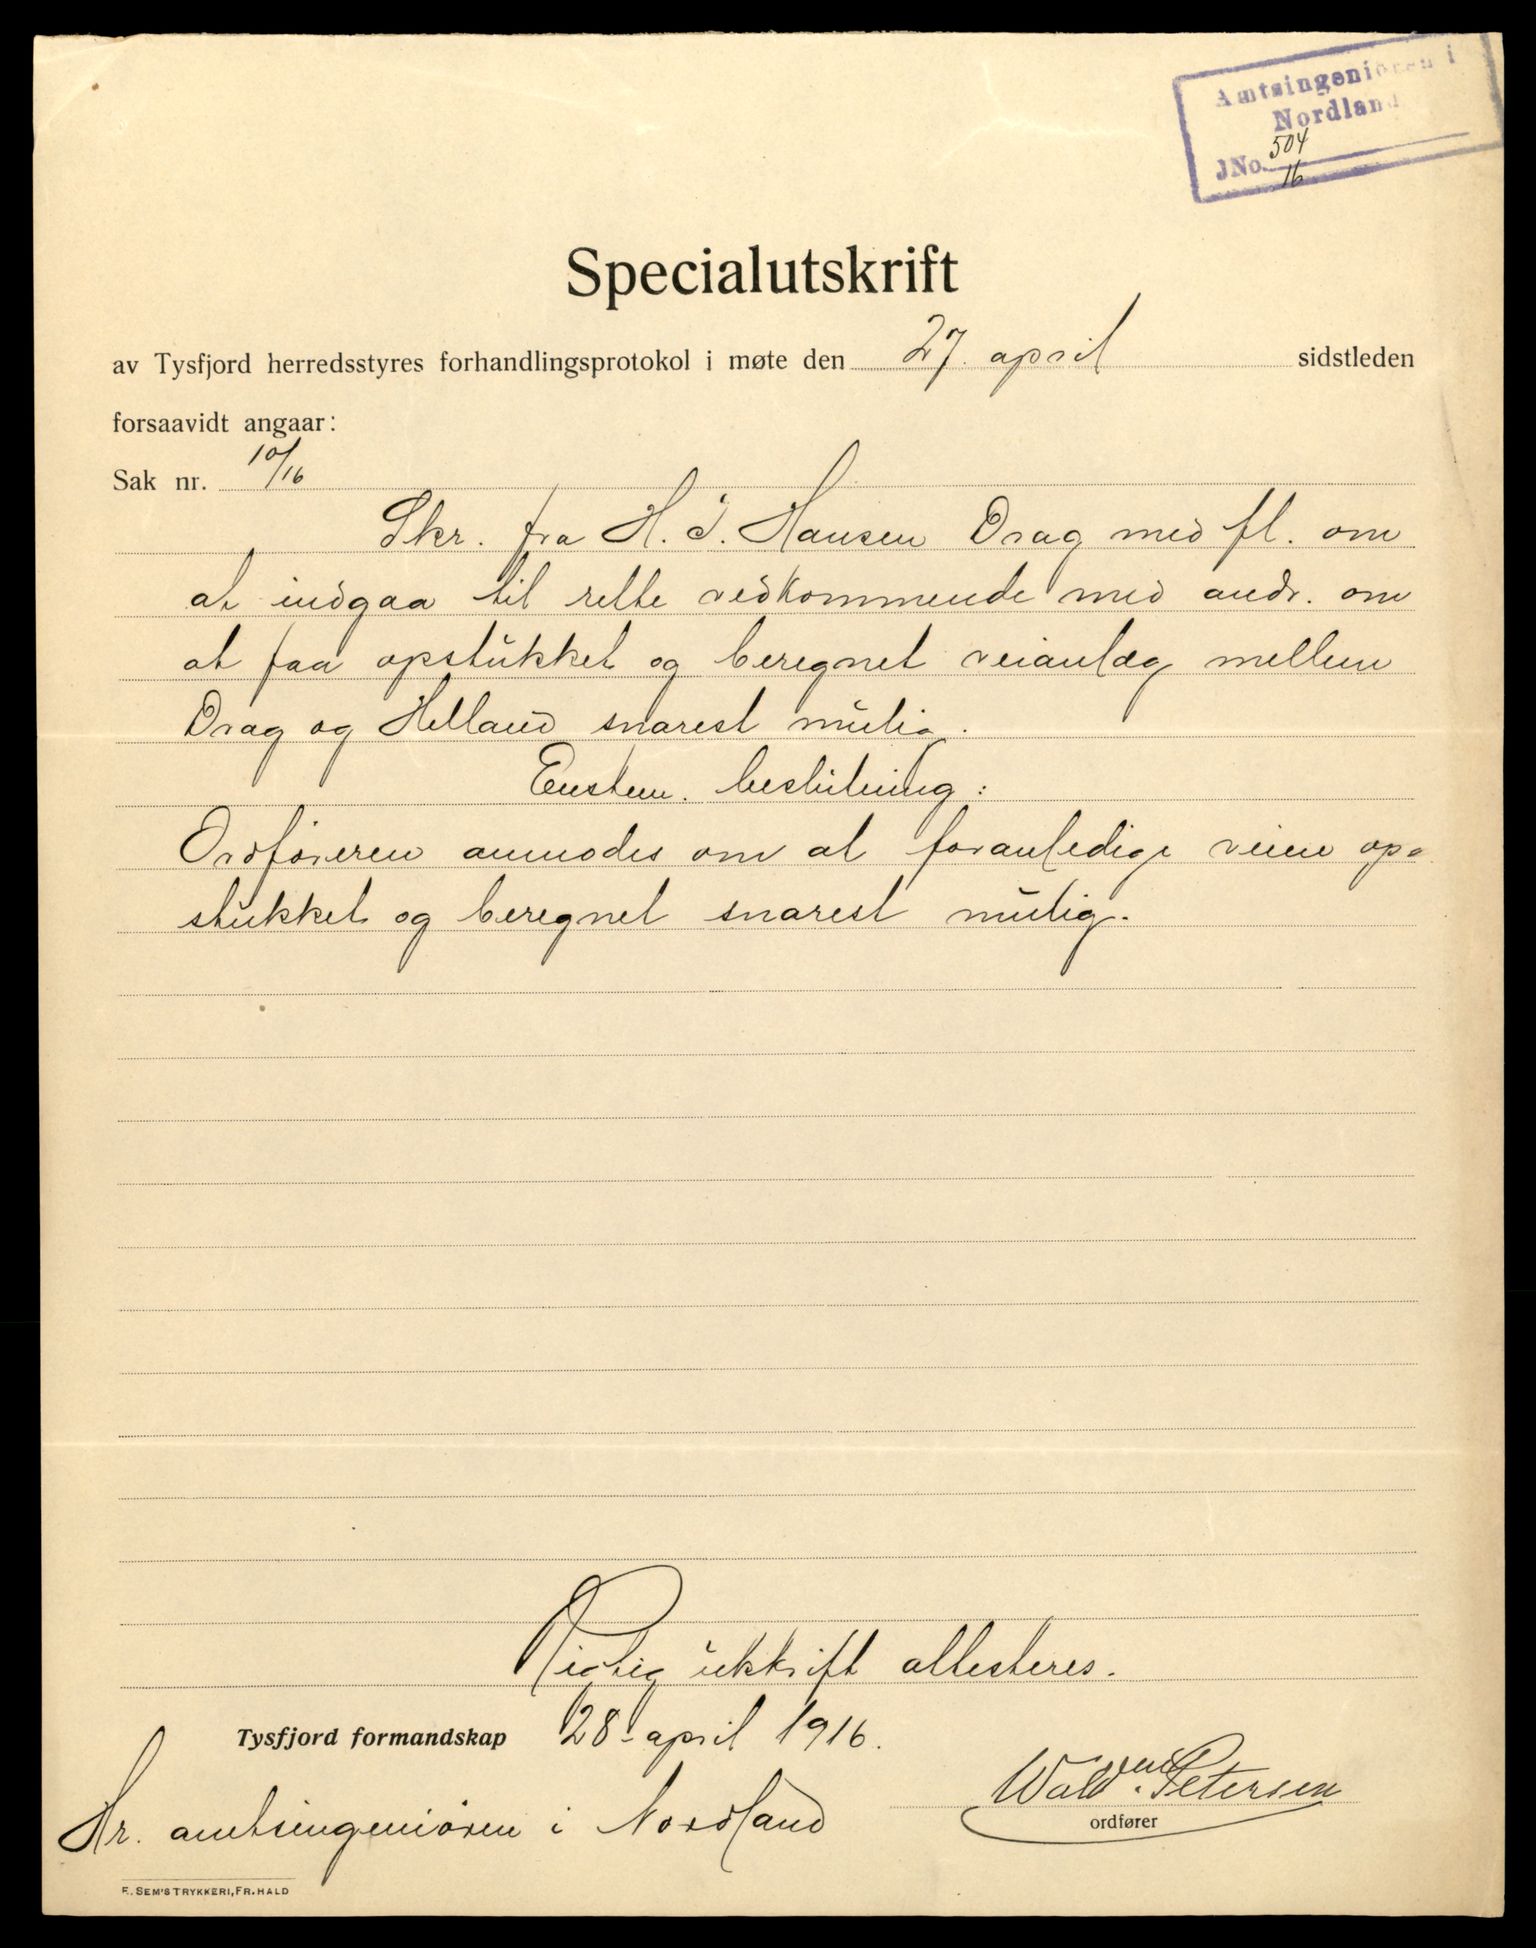 Amtsingeniøren i
Nordland
JNo. 504
16
Specialutskrift
av Tysfjord herredsstyres forhandlingsprotokol i møte den 27. april sidstleden
forsaavidt angaar:
Sak nr. 10/16
Skr. fra H. J. Hansen Drag med fl. om
at indgaa til rette vedkommende med andr. om
at faa opstukket og beregnet veianlæg mellem
Drag og Helland snarest mulig.
Enstem. beslutning:
Ordføreren anmodes om at foranledige veien op-
stukket og beregnet snarest mulig.
Rigtig utskrift attesteres.
Tysfjord formandskap 28 april 1916.
Wald. Petersen
ordfører
Hr. amtsingeniøren i Nordland
E. SEM'S TRYKKERI, FR. HALD